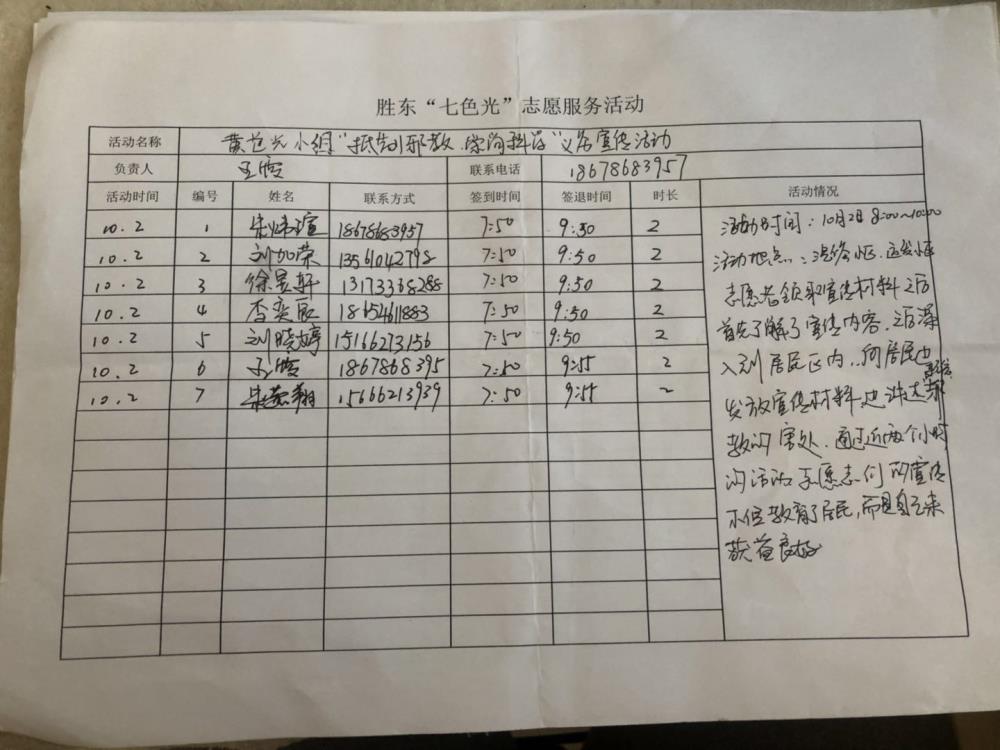 胜东“七色光”志愿服务活动
活动名称 黄色光小组“抵制邪教、崇尚科学”义务宣传活动
负责人 联系电话 18678683957
活动时间 编号 姓名 联系方式 签到时间 签退时间 时长 活动情况
10.2 1 18678683957 7:50 9:50 2
10.2 2 刘加荣 13561042798 7:50 9:50 2
10.2 3 徐昱轩 13173368288 7:50 9:50 2
10.2 4 李奕辰 18654611883 7:50 9:50 2
10.2 5 刘晓婷 15166273156 7:50 9:50 2
10.2 6 1867868395 7:50 9:55 2
10.2 7 15666213939 7:50 9:55 2
活动时间:10月2日 8:00~10:00
活动地点:
志愿者领取宣传材料之后
首先了解了宣传内容.之后深
入到居民区内、向居民边
发放宣传材料边讲述邪
教的害处.通过近两个小时
的活动 志愿者们的宣传
不但教育了居民,而且自己来
获益良好